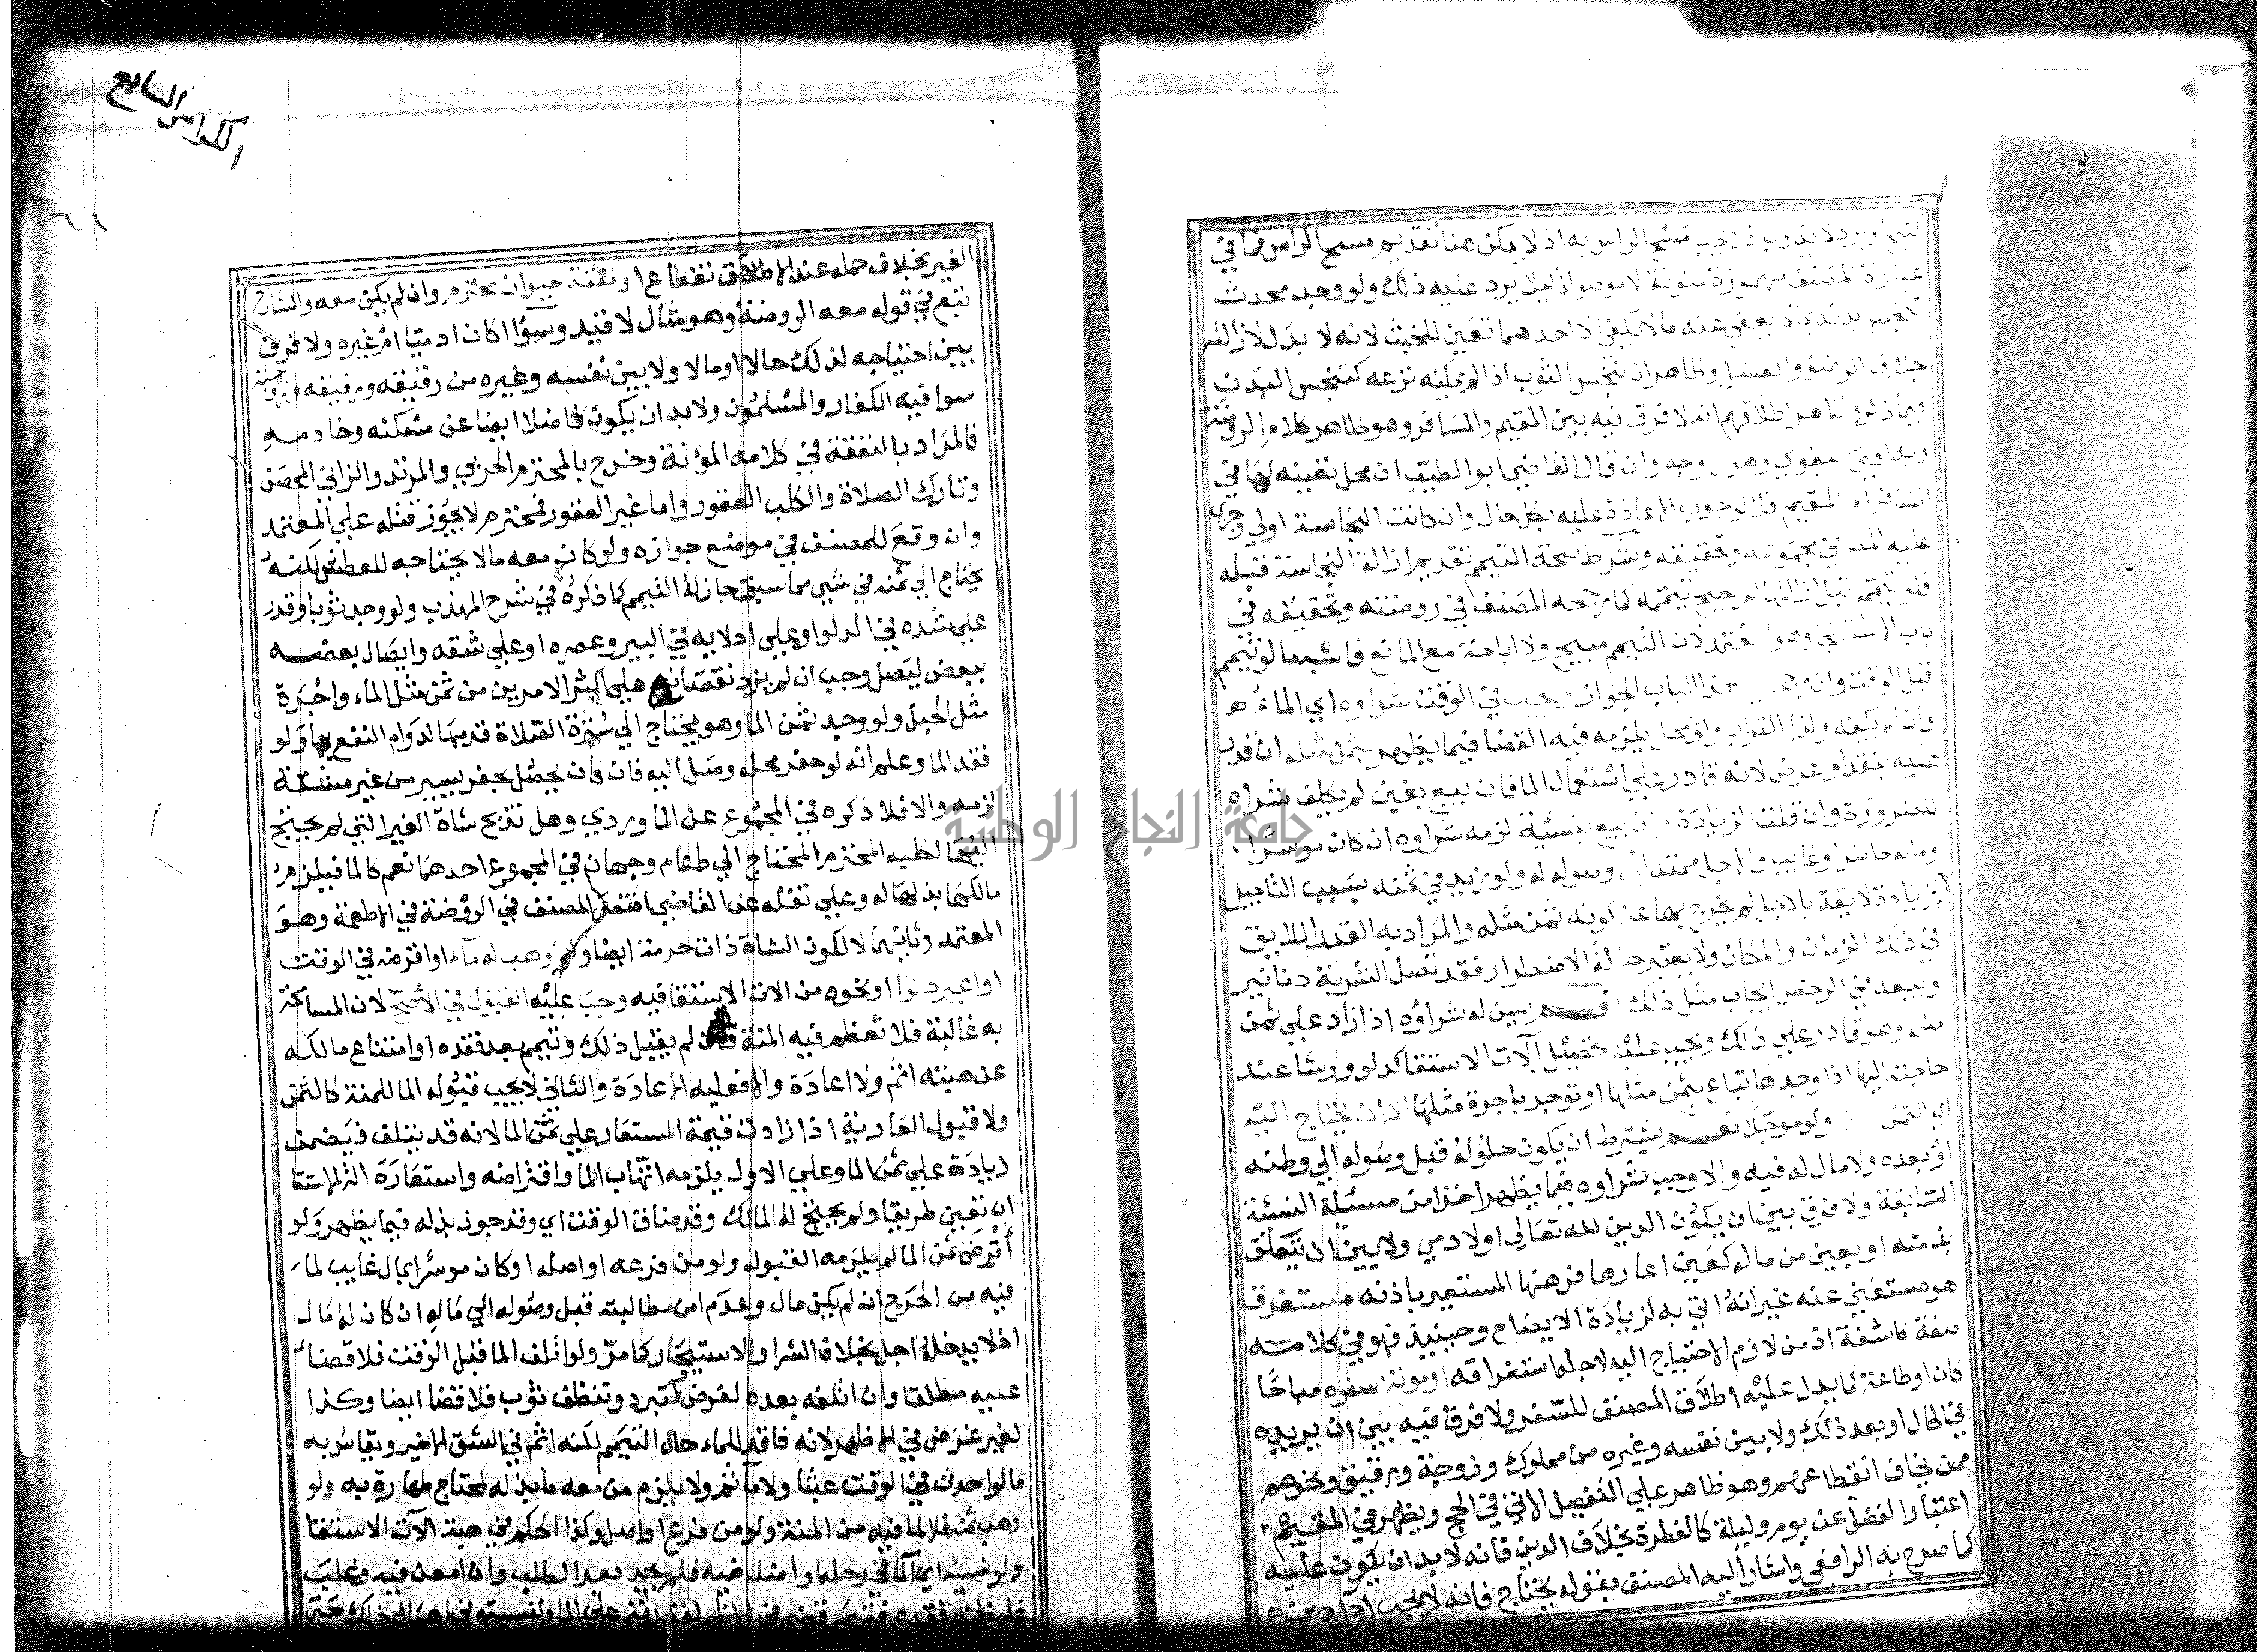 عبارة المصنف مهموزة منونة لا موصولة ليلا يرد عليه ذلك ولو وجد محدث
تنجس بدنه بما لا يعفى عنه ما لا يكفي الا احدهما تعين للخبث لانه لا بدل لازالته
بخلاف الوضوء والغسل وظاهر ان تنجس الثوب اذا لم يمكنه نزعه كتنجس البدن
فيما ذكر وظاهر اطلاقهم انه لا فرق فيه بين المقيم والمسافر وهو ظاهر كلام الروضة
وبه افتى البغوي وهو وجه وان قال القاضي ابو الطيب ان محل تعينه لها في
المسافر اما المقيم فلا لوجوب الاعادة عليه بكل حال وان كانت النجاسة اولى وجرى
عليه المص في مجموعه وتحقيقه وشرط صحة التيمم تقديم ازالة النجاسة قبله
فلو تيمم قبل ازالتها لم يصح تيممه كما رجحه المصنف في روضته وتحقيقه في
باب الاستنجا وهو المعتمد لان التيمم مبيح ولا اباحة مع المانع فاشبه ما لو تيمم
قبل الوقت وان رجح هذا الباب الجواز ويجب في الوقت شراوه اي الماء
وان لم يكفه وكذا التراب ولو بمحل يلزمه فيه القضا فيما يظهر بثمن مثله ان قدر
عليه بنقد او عرض لانه قادر على استعمال الما فان بيع بغبن لم يكلف شراه
للضرورة وان قلت الزيادة فان بيع بنسيئة لزمه شراوه ان كان موسرا
وماله حاضرا وغايب والاجل ممتد الى وصوله له ولو زيد في ثمنه بسبب التاجيل
زيادة لايقة بالاجل لم يخرج بها عن كونه ثمن مثله والمراد به القدر اللايق
في ذلك الزمان والمكان ولا يعتبر حالة الاضطرار فقد تصل الشربة دنانير
ويبعد في الرخص ايجاب مثل ذلك نعم يسن له شراؤه اذا زاد على ثمن
مثله وهو قادر على ذلك ويجب عليه تحصيل آلات الاستقا كدلو ورشا عند
حاجته اليها اذا وجدها تباع بثمن مثلها او توجر باجرة مثلها الا ان يحتاج اليه
اي الثمن ولو موجلا نعم يشترط ان يكون حلوله قبل وصوله الى وطنه
او بعده ولا مال له فيه والا وجب شراوه فيما يظهر اخذا من مسئلة النسئة
السابقة ولا فرق بين ان يكون الدين لله تعالى او لادمي ولا بين ان يتعلق
بذمته او بعين من ماله كعين اعارها فرهنها المستعير باذنه مستغرق
هو مستغني عنه غير انه اتى به لزيادة الايضاح وحينيذ فهو في كلامه
صفة كاشفة اذ من لازم الاحتياج اليه لاجله استغراقه او مونة سفره مباحا
كان او طاعة كما يدل عليه اطلاق المصنف للسفر ولا فرق فيه بين ان يريده
في الحال او بعد ذلك ولا بين نفسه وغيره من مملوك وزوجة ورقيق ونحوهم
ممن يخاف انقطاعهم وهو ظاهر على التفصيل الاتي في الحج ويظهر في المقيم
اعتبار الفضل عن يوم وليلة كالفطرة بخلاف الدين فانه لا بد ان يكون عليه
كما صرح به الرافعي واشار اليه المصنف بقوله يحتاج فانه لا يجب
الكراس السابع
٦١
الغير بخلاف حمله عند الاطلاق نفطاع او نفقة حيوان محترم وان لم يكن معه والشارح
تبع في قوله معه الروضة وهو مثال لا قيد وسوا اكان ادميا ام غيره ولا فرق
بين احتياجه لذلك حالا او مالا ولا بين نفسه وغيره من رقيقه ورفيقه وزوجته
سوا فيه الكفار والمسلمون ولا بد ان يكون فاضلا ايضا عن مسكنه وخادمه
فالمراد بالنفقة في كلامه المؤنة وخرج بالمحترم الحربي والمرتد والزاني المحصن
وتارك الصلاة والكلب العقور واما غير العقور فمحترم لا يجوز قتله على المعتمد
وان وقع للمصنف في موضع جوازه ولو كان معه ما لا يحتاجه للعطش لكنه
يحتاج الى ثمنه في شيء مما سبق جاز له التيمم كما ذكره في شرح المهذب ولو وجد ثوبا وقدر
على شده في الدلو او على ادلايه في البير وعصره او على شقه وايصال بعضه
ببعض ليصل وجب ان لم يزد نقصانه على اكثر الامرين من ثمن مثل الماء واجرة
مثل الحبل ولو وجد ثمن الما وهو يحتاج الى سترة الصلاة قدمها لدوام النفع بها ولو
فقد الما وعلم انه لو حفر محله وصل اليه فان كان يحصل بحفر يسير من غير مشقة
لزمه والا فلا ذكره في المجموع عن الماوردي وهل تذبح شاة الغير التي لم يحتج
اليها لكلبه المحترم المحتاج الى طعام وجهان في المجموع احدهما نعم كالما فيلزم
مالكها بذلها له وعلى نقله عن القاضي اقتصر المصنف في الروضة في الاطعمة وهو
المعتمد وثانيهما لا لكون الشاة ذات حرمة ايضا ولو وهب له ماء او اقرضه في الوقت
او اعير دلوا او نحوه من الات الاستقا فيه وجب عليه القبول في الأصح لان المسامحة
به غالبة فلا تعظم فيه المنة فان لم يقبل ذلك وتيمم بعد فقده او امتناع مالكه
عن هبته اثم ولا اعادة والا فعليه الاعادة والثاني لا يجب قبوله الما للمنة كالثمن
ولا قبول العارية اذا زادت قيمة المستعار على ثمن الما لانه قد يتلف فيضمن
زيادة على ثمن الما وعلى الاول يلزمه اتهاب الما واقتراضه واستعارة الة الاستقا
ان تعين طريقا ولم يحتج له المالك وقد ضاق الوقت اي وقد جوز بذله فيما يظهر ولو
أقرض ثمن الما لم يلزمه القبول ولو من فرعه او اصله او كان موسرا بمال غايب لما
فيه من الحرج ان لم يكن مال وعدم امن مطالبته قبل وصوله الى ماله ان كان له مال
اذ لا يدخله اجل بخلاف الشرا والاستيجار كما مر ولو اتلف الما قبل الوقت فلا قضا
عليه مطلقا وان اتلفه بعده لغرض كتبرد وتنظف ثوب فلا قضا ايضا وكذا
لغير غرض في الاظهر لانه فاقد للماء حال التيمم لكنه اثم في الشق الاخير ويقاس به
ما لو احدث في الوقت عبثا ولا ماء ثم ولا يلزم من معه ماء بذله لمحتاج طهارة به ولو
وهب ثمنه فلا لما فيه من المنة ولو من فرع او اصل وكذا الحكم في هبة الآت الاستقا
ولو نسيه اي الما في رحله او اضله فيه فلم يجده بعد الطلب وان امعن فيه وغلب
على ظنه فقده فتيمم قضى في الاظهر
جامعة النجاح الوطنية